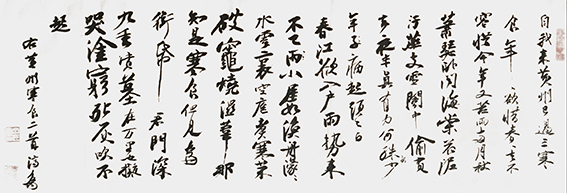 自我来黄州已過三寒
食年 欲惜春去不
容惜今年又苦雨兩月秋
蕭瑟卧聞海棠花泥
汙燕支雪闇中偷負
去夜半真有力何殊少
年子病起頭已白
春江欲入户雨勢来
不已雨小屋如漁舟濛々
水雲裏空庖煮寒菜
破竈燒濕葦那
知是寒食但見烏
銜帋 君門深
九重墳墓在万里也擬
哭塗窮死灰吹不
起
右黄州寒食二首